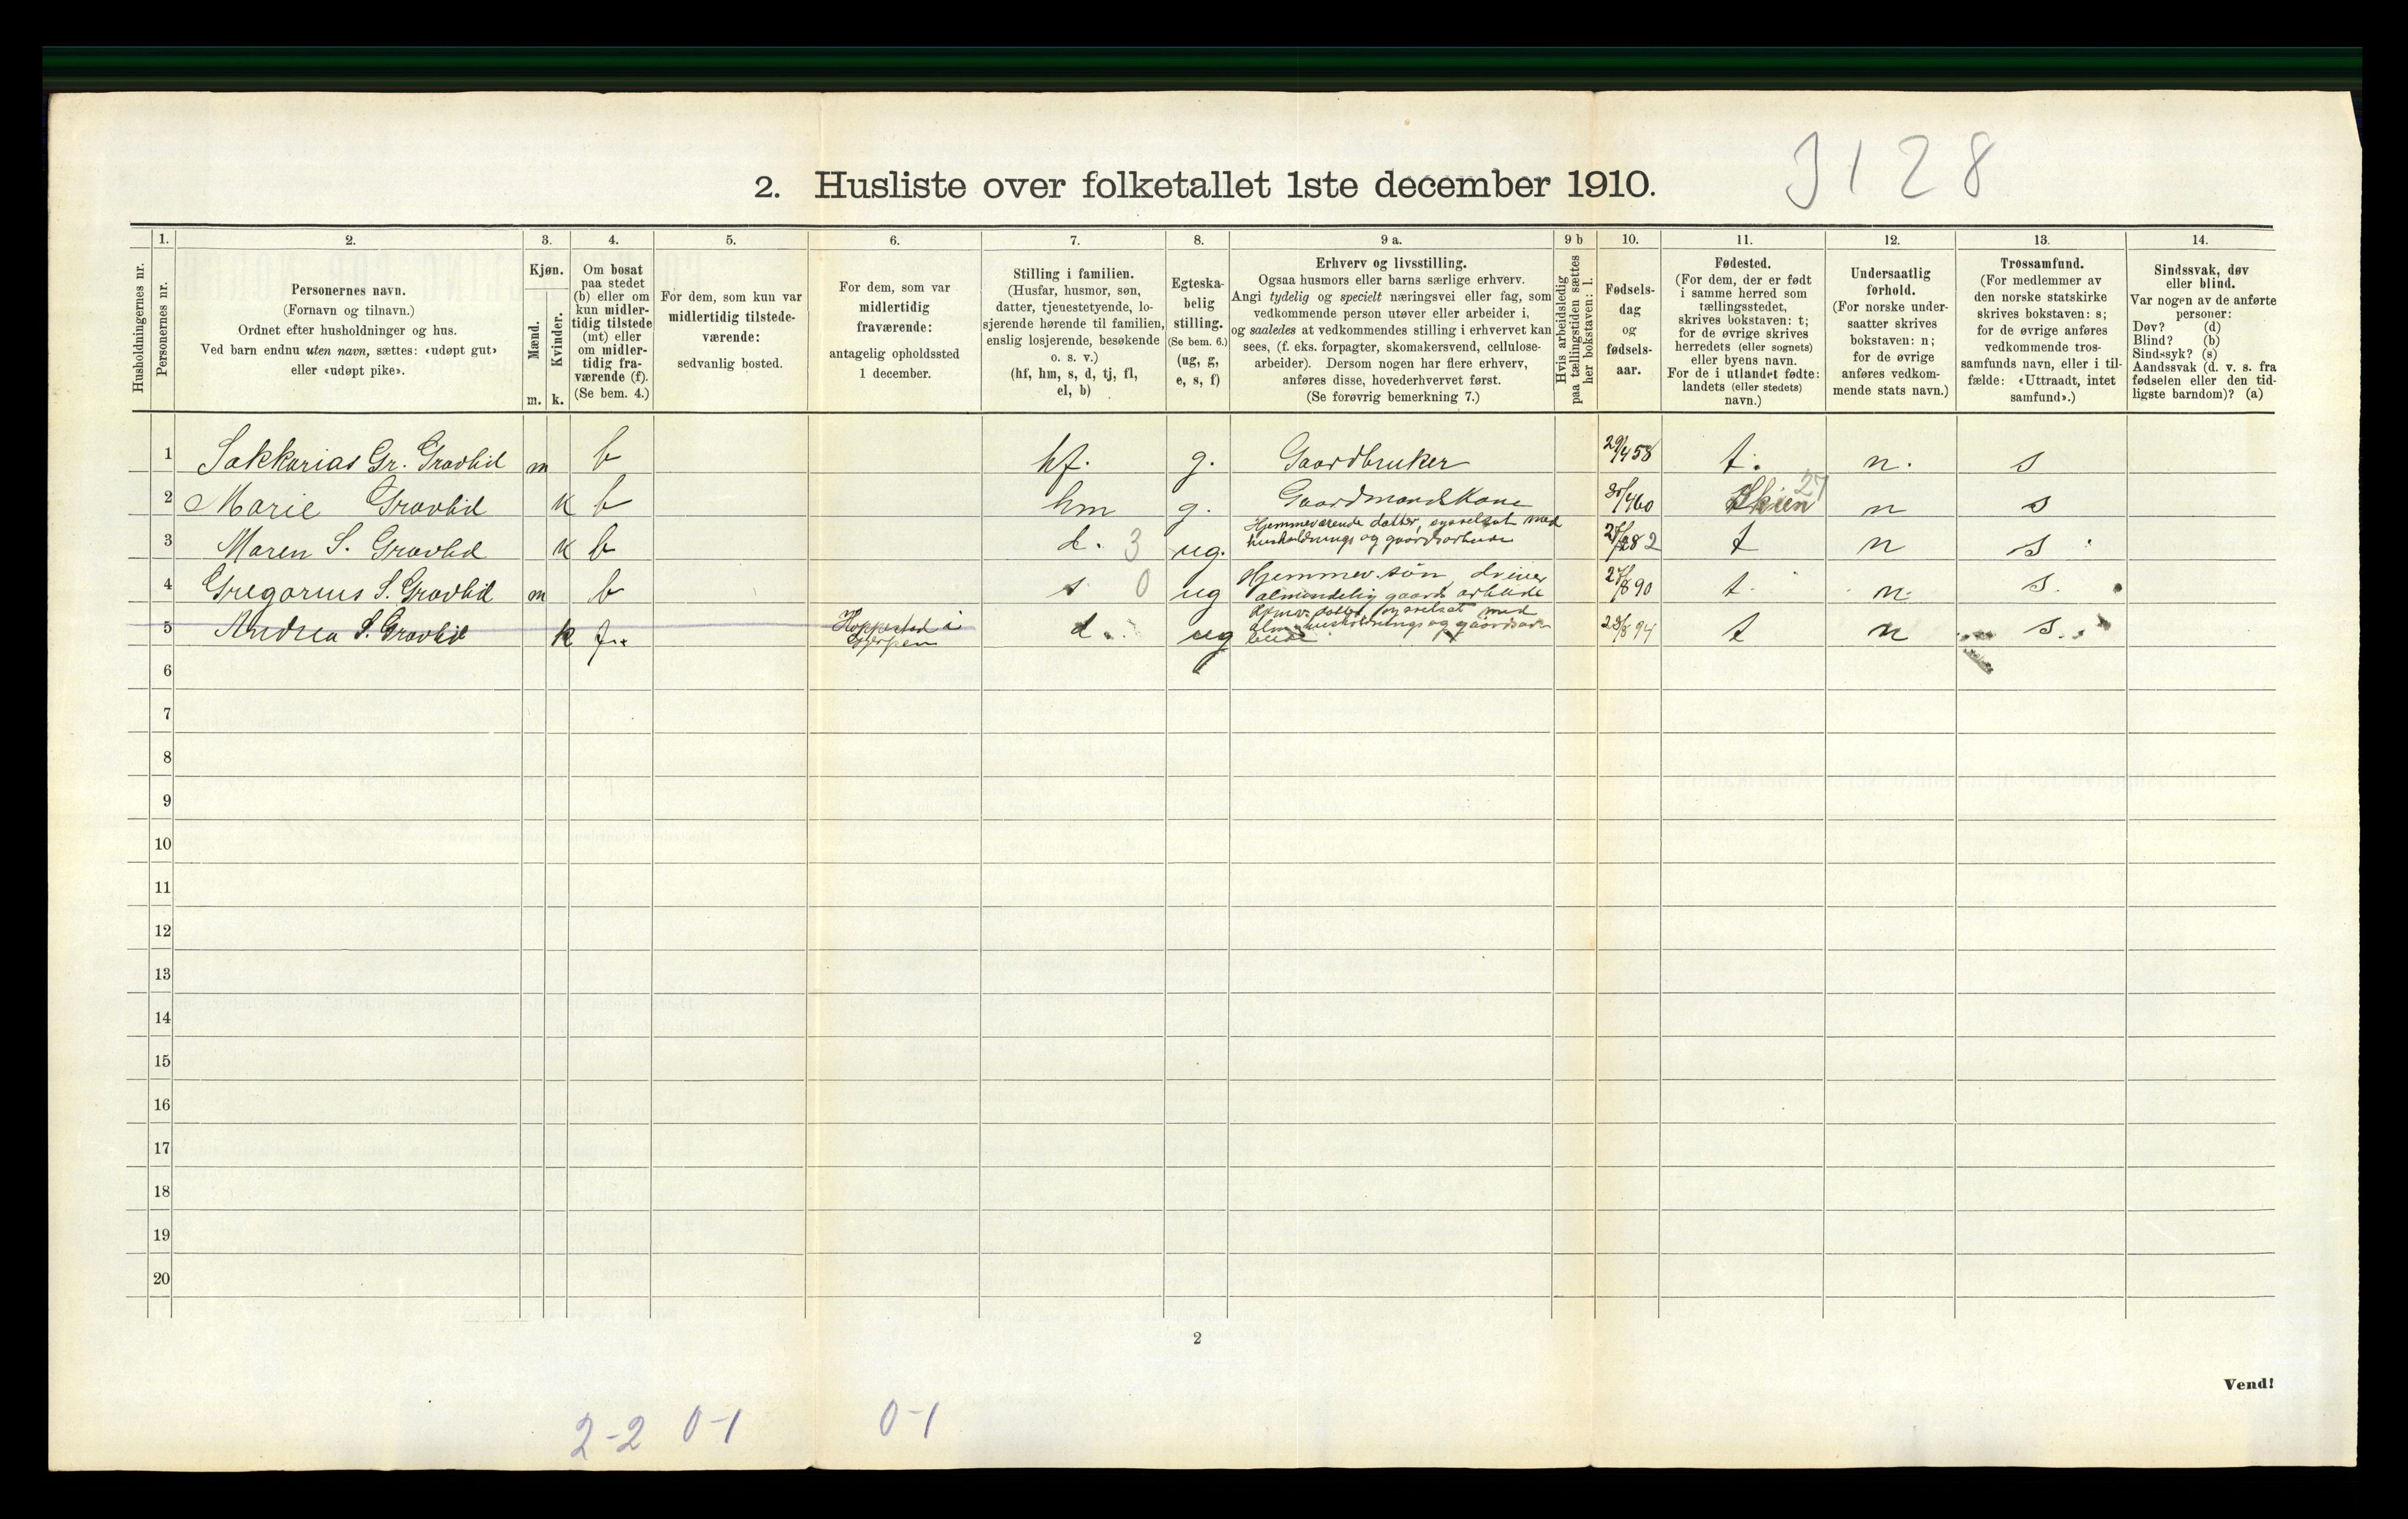 3128
2. Husliste over folketallet 1ste december 1910.
1. 2. 3. 4. 5. 6. 7. 8. 9 a. 9 b 10. 11. 12. 13. 14.
Husholdningernes nr.
Personernes nr.
Personernes navn.
(Fornavn og tilnavn.)
Ordnet efter husholdninger og hus.
Ved barn endnu uten navn, sættes: «udøpt gut»
eller «udøpt pike».
Kjøn.
Mænd.
Kvinder.
m. k.
Om bosat
paa stedet
(b) eller om
kun midler-
tidig tilstede
(mt) eller
om midler-
tidig fra-
værende (f).
(Se bem. 4.)
For dem, som kun var
midlertidig tilstede-
værende:
sedvanlig bosted.
For dem, som var
midlertidig
fraværende:
antagelig opholdssted
1 december.
Stilling i familien.
(Husfar, husmor, søn,
datter, tjenestetyende, lo-
sjerende hørende til familien,
enslig losjerende, besøkende
o. s. v.)
(hf, hm, s, d, tj, fl,
el, b)
Egteska-
belig
stilling.
(Se bem. 6.)
(ug, g,
e, s, f)
Erhverv og livsstilling.
Ogsaa husmors eller barns særlige erhverv.
Angi tydelig og specielt næringsvei eller fag, som
vedkommende person utøver eller arbeider i,
og saaledes at vedkommendes stilling i erhvervet kan
sees, (f. eks. forpagter, skomakersvend, cellulose-
arbeider). Dersom nogen har flere erhverv,
anføres disse, hovederhvervet først.
(Se forøvrig bemerkning 7.)
Hvis arbeidsledig
paa tællingstiden sættes
her bokstaven: l.
Fødsels-
dag
og
fødsels-
aar.
Fødested.
(For dem, der er født
i samme herred som
tællingsstedet,
skrives bokstaven: t;
for de øvrige skrives
herredets (eller sognets)
eller byens navn.
For de i utlandet fødte:
landets (eller stedets)
navn.)
Undersaatlig
forhold.
(For norske under-
saatter skrives
bokstaven: n;
for de øvrige
anføres vedkom-
mende stats navn.)
Trossamfund.
(For medlemmer av
den norske statskirke
skrives bokstaven: s;
for de øvrige anføres
vedkommende tros-
samfunds navn, eller i til-
fælde: «Uttraadt, intet
samfund».)
Sindssvak, døv
eller blind.
Var nogen av de anførte
personer:
Døv? (d)
Blind? (b)
Sindssyk? (s)
Aandssvak (d. v. s. fra
fødselen eller den tid-
ligste barndom)? (a)
1 Sakkarias Gr. Gravlid m b hf. g. Gaardbruker 29/4 58 t. n. s
2 Marie Gravlid k b hm g. Gaardmandskone /4 60 Skien 27 n s
3 Maren S. Gravlid k b d. 3 ug. Hjemmeværende datter, sysselsat med
husholdnings og gaardsarbeide 82 t n s
4 Gregorius S. Gravlid m b s. 0 ug Hjemmev. søn driver
almindelig gaards arbeide /8 90 t. n. s.
5 Andrea S. Gravlid k f. Hoppestad i
Gjerpen d. ug datter sysselsat med
alm husholdnings og gaardsar-
beide 23/8 94 t n s.
6
7
8
9
10
11
12
13
14
15
16
17
18
19
20
2
Vend!
2-2 0-1 0-1